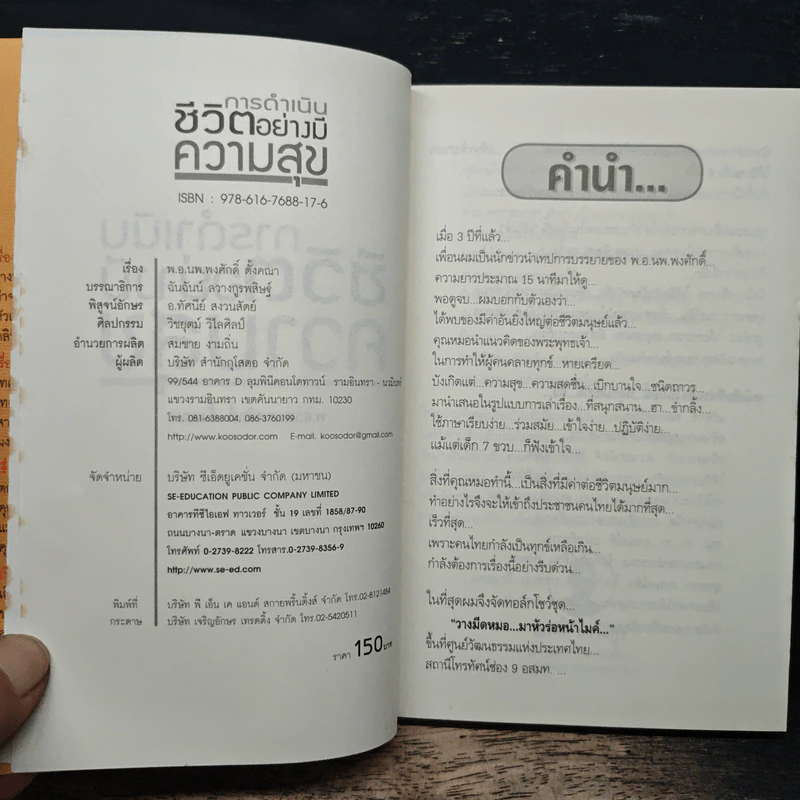 การดำเนิน
ชีวิตอย่างมี
ความสุข
ISBN : 978-616-7688-17-6
เรื่อง พ.อ.นพ.พงศักดิ์ ตั้งคณา
บรรณาธิการ ฉันฉันท์ ลวางกูรพสิษฐ์
พิสูจน์อักษร อ.ทัศนีย์ สงวนสัตย์
ศิลปกรรม วิชยุตม์ วิไลศิลป์
อำนวยการผลิต สมชาย งามถิ่น
ผู้ผลิต บริษัท สำนักกุโสดอ จำกัด
99/544 อาคาร D ลุมพินีคอนโดทาวน์ รามอินทรา -
แขวงรามอินทรา เขตคันนายาว กทม. 10230
โทร. 081-6388004, 086-3760199
http://www.koosodor.com E-mail. koosodor@gmail.com
จัดจำหน่าย บริษัท ซีเอ็ดยูเคชั่น จำกัด (มหาชน)
SE-EDUCATION PUBLIC COMPANY LIMITED
อาคารทีซีไอเอฟ ทาวเวอร์ ชั้น 19 เลขที่ 1858/87-90
ถนนบางนา-ตราด แขวงบางนา เขตบางนา กรุงเทพฯ 10260
โทรศัพท์ 0-2739-8222 โทรสาร.0-2739-8356-9
http://www.se-ed.com
พิมพ์ที่ บริษัท พี เอ็น เค แอนด์ สกายพริ้นติ้งส์ จำกัด โทร.02-8121484
กระดาษ บริษัท เจริญอักษร เทรดดิ้ง จำกัด โทร.02-5420511
ราคา 150 บาท
คำนำ...
เมื่อ 3 ปีที่แล้ว...
เพื่อนผมเป็นนักข่าวนำเทปการบรรยายของ พ.อ.นพ.พงศักดิ์...
ความยาวประมาณ 15 นาทีมาให้ดู...
พอดูจบ...ผมบอกกับตัวเองว่า...
ได้พบของมีค่าอันยิ่งใหญ่ต่อชีวิตมนุษย์แล้ว...
คุณหมอนำแนวคิดของพระพุทธเจ้า...
ในการทำให้ผู้คนคลายทุกข์...หายเครียด...
บังเกิดแต่...ความสุข...ความสดชื่น...เบิกบานใจ...ชนิดถาวร...
มานำเสนอในรูปแบบการเล่าเรื่อง...ที่สนุกสนาน...ฮา...ขำกลิ้ง...
ใช้ภาษาเรียบง่าย...ร่วมสมัย...เข้าใจง่าย...ปฏิบัติง่าย...
แม้แต่เด็ก 7 ขวบ...ก็ฟังเข้าใจ...
สิ่งที่คุณหมอทำนี้...เป็นสิ่งที่มีค่าต่อชีวิตมนุษย์มาก...
ทำอย่างไรจึงจะให้เข้าถึงประชาชนคนไทยได้มากที่สุด...
เร็วที่สุด...
เพราะคนไทยกำลังเป็นทุกข์เหลือเกิน...
กำลังต้องการเรื่องนี้อย่างรีบด่วน...
ในที่สุดผมจึงจัดทอล์กโชว์ชุด...
"วางมีดหมอ...มาหัวร่อหน้าไมค์..."
ขึ้นที่ศูนย์วัฒนธรรมแห่งประเทศไทย...
สถานีโทรทัศน์ช่อง 9 อสมท. ...